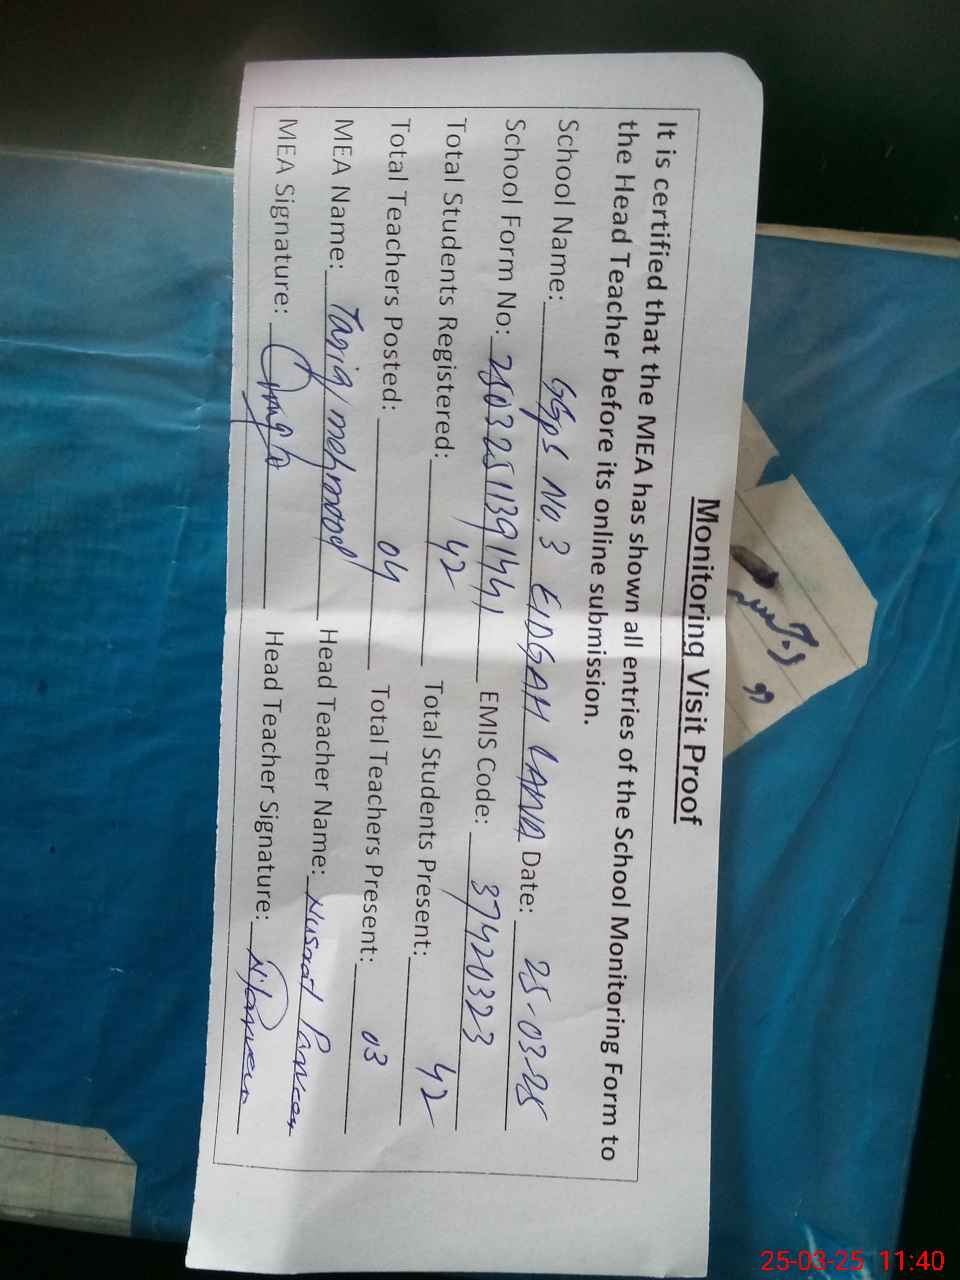 Monitoring Visit Proof
It is certified that the MEA has shown all entries of the School Monitoring Form to
the Head Teacher before its online submission.
School Name: GGPS No. 3 EIDGAH LANA Date: 25-03-25
School Form No: 25032511391441 EMIS Code: 37420323
Total Students Registered: 42 Total Students Present: 42
Total Teachers Posted: 04 Total Teachers Present: 03
MEA Name: Tariq mehmood Head Teacher Name: Nusrat Parveen
MEA Signature: Head Teacher Signature: N. Parveen
25-03-25 11:40